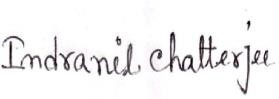 Indranil Chatterjee